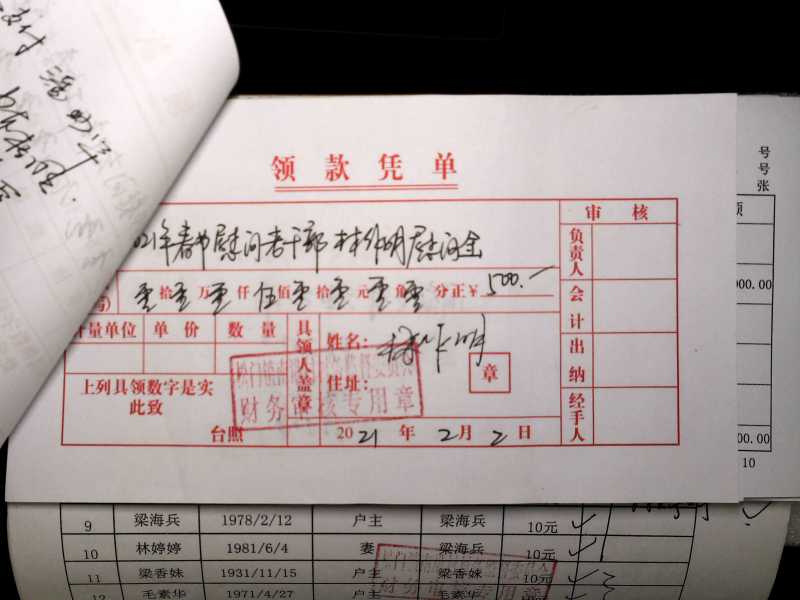 支付
领款凭单
21年春节慰问老干部林作明慰问金
零拾零万零仟伍佰零拾零元零角零分正￥500.—
计量单位 单价 数量
具领人盖章
姓名：林作明
住址：
章
上列具领数字是实
此致
台照
2021年2月2日
财务审核专用章
审核
负责人
会计
出纳
经手人
号
号
张
000.00
00.00
10
9 梁海兵 1978/2/12 户主 梁海兵 10元
10 林婷婷 1981/6/4 妻 梁海兵 10元
11 梁香妹 1931/11/15 户主 梁香妹 10元
12 毛素华 1971/4/27 户主 毛素华 10元
财务审核专用章